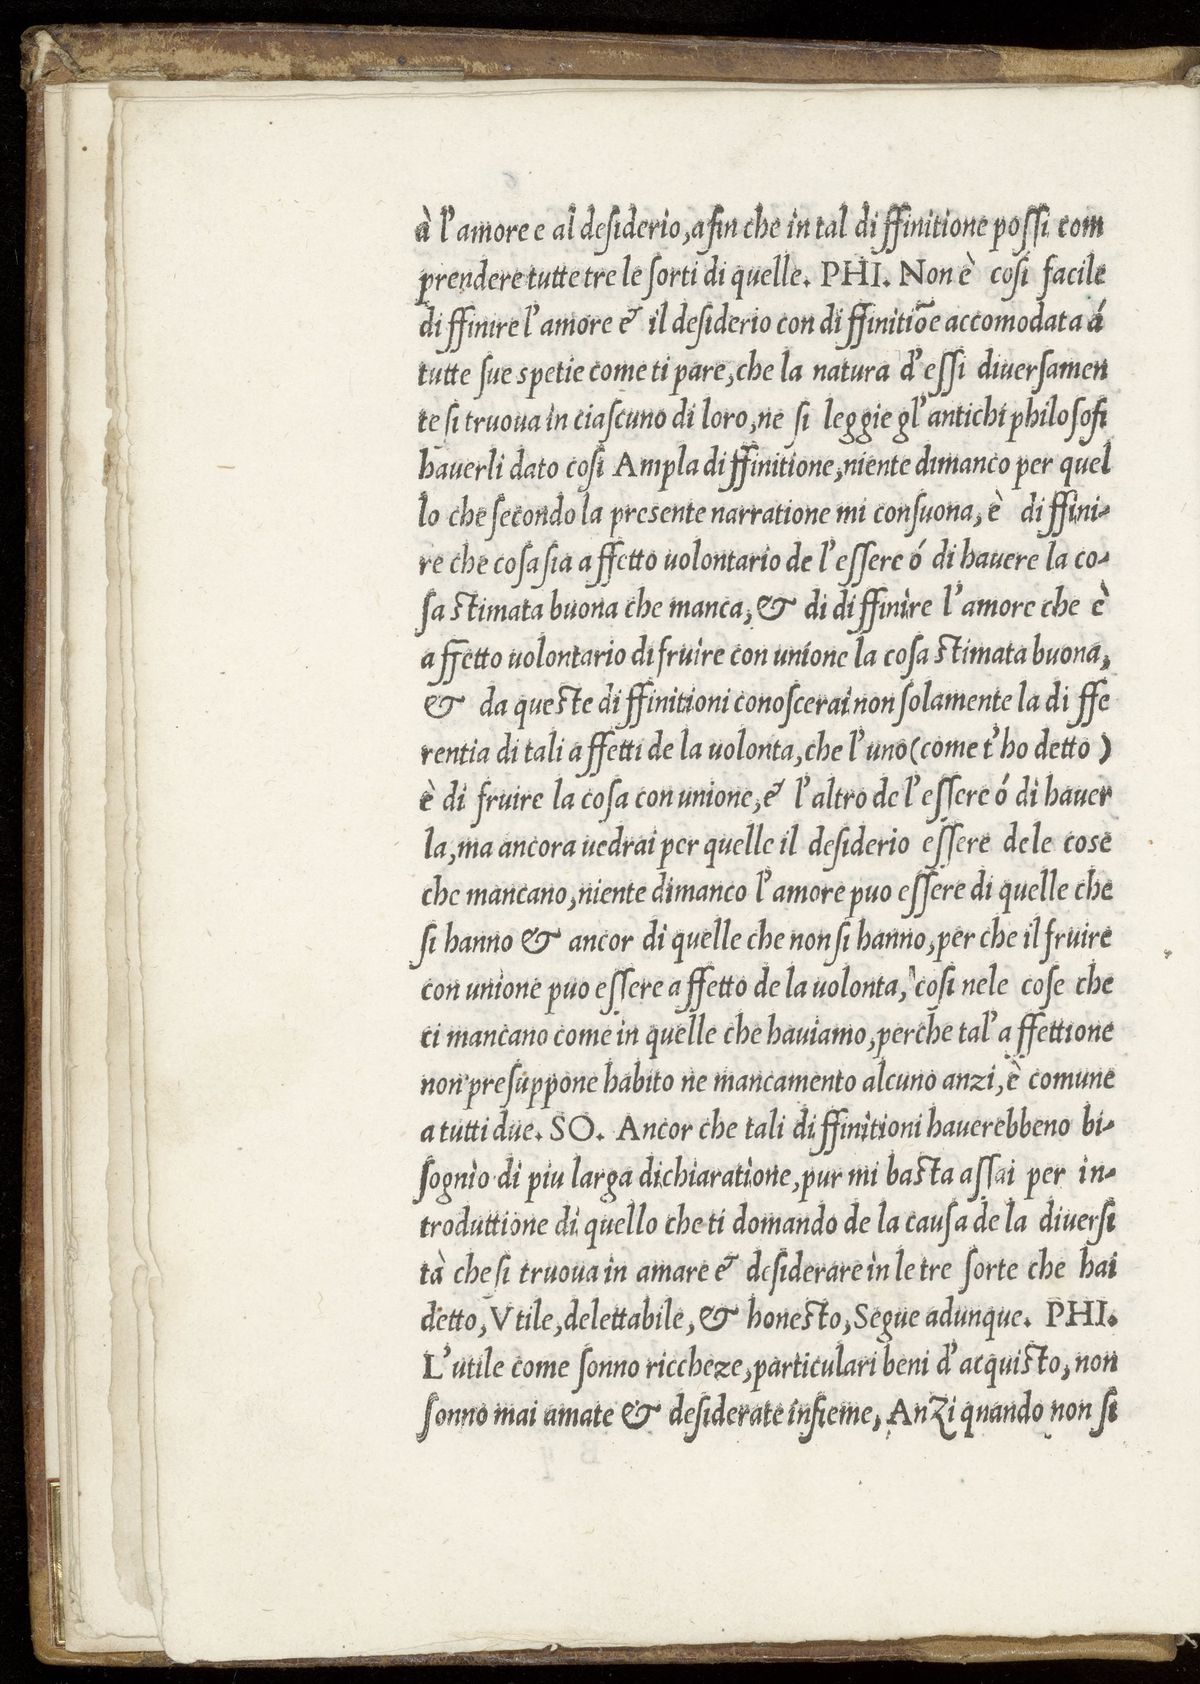 à l'amore e al desiderio, afin che in tal diffinitione possi com
prendere tutte tre le sorti di quelle. PHI. Non è cosi facile
diffinire l'amore & il desiderio con diffinitiõe accomodata á
tutte sue spetie come ti pare, che la natura d'essi diuersamen
te si truoua in ciascuno di loro, ne si leggie gl'antichi philosofi
hauerli dato cosi Ampla diffinitione, niente dimanco per quel
lo che secondo la presente narratione mi consuona, è diffini-
re che cosa sia affetto uolontario de l'essere ó di hauere la co-
sa stimata buona che manca, & di diffinire l'amore che è
affetto uolontario di fruire con unione la cosa stimata buona,
& da queste diffinitioni conoscerai non solamente la diffe
rentia di tali affetti de la uolonta, che l'uno (come t'ho detto)
è di fruire la cosa con unione, & l'altro de l'essere ó di hauer
la, ma ancora uedrai per quelle il desiderio essere dele cose
che mancano, niente dimanco l'amore puo essere di quelle che
si hanno & ancor di quelle che non si hanno, per che il fruire
con unione puo essere affetto de la uolonta, cosi nele cose che
ci mancano come in quelle che hauiamo, perche tal'affettione
non presuppone habito ne mancamento alcuno anzi, è comune
a tutti due. SO. Ancor che tali diffinitioni hauerebbeno bi-
sognio di piu larga dichiaratione, pur mi basta assai per in-
troduttione di quello che ti domando de la causa de la diuersi
tà che si truoua in amare & desiderare in le tre sorte che hai
detto, Vtile, delettabile, & honesto, Segue adunque. PHI.
L'utile come sonno riccheze, particulari beni d'acquisto, non
sonno mai amate & desiderate insieme, Anzi quando non si